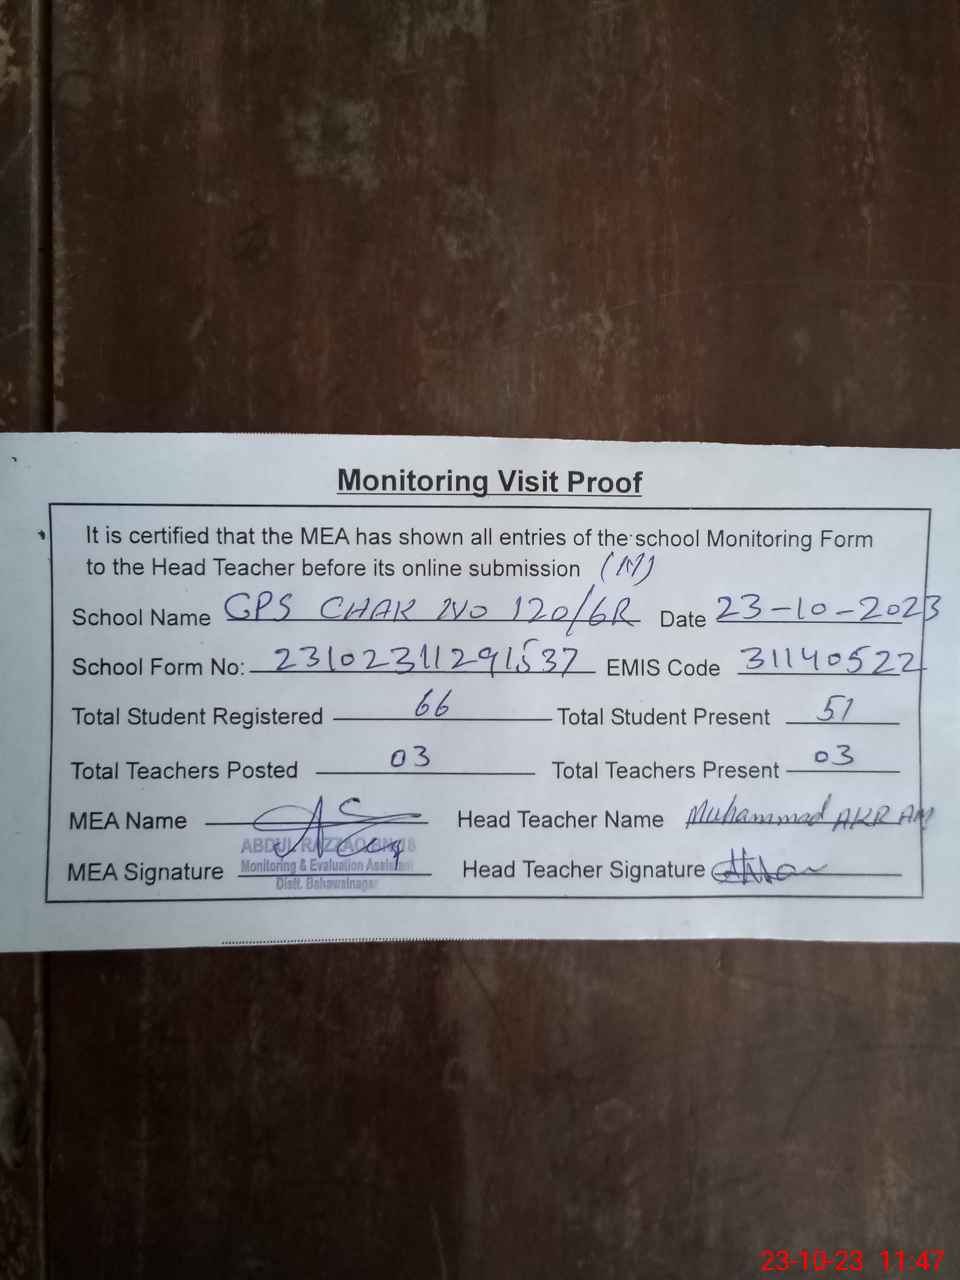 Monitoring Visit Proof
It is certified that the MEA has shown all entries of the school Monitoring Form
to the Head Teacher before its online submission (M)
School Name GPS CHAK NO 120/6R Date 23-10-2023
School Form No: 23102311291537 EMIS Code 31140522
Total Student Registered 66 Total Student Present 51
Total Teachers Posted 03 Total Teachers Present 03
MEA Name Head Teacher Name Muhammad AKRAM
ABDUL RAZZAQ
MEA Signature Monitoring & Evaluation Assistant Head Teacher Signature
Distt. Bahawalnagar
23-10-23 11:47